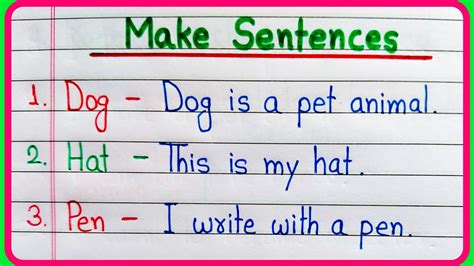 Make Sentences
1. Dog - Dog is a pet animal.
2. Hat - This is my hat.
3. Pen - I write with a pen.